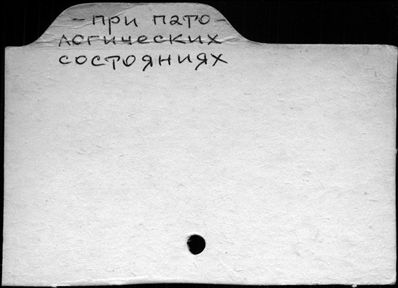 - при пато -
логических
состояниях